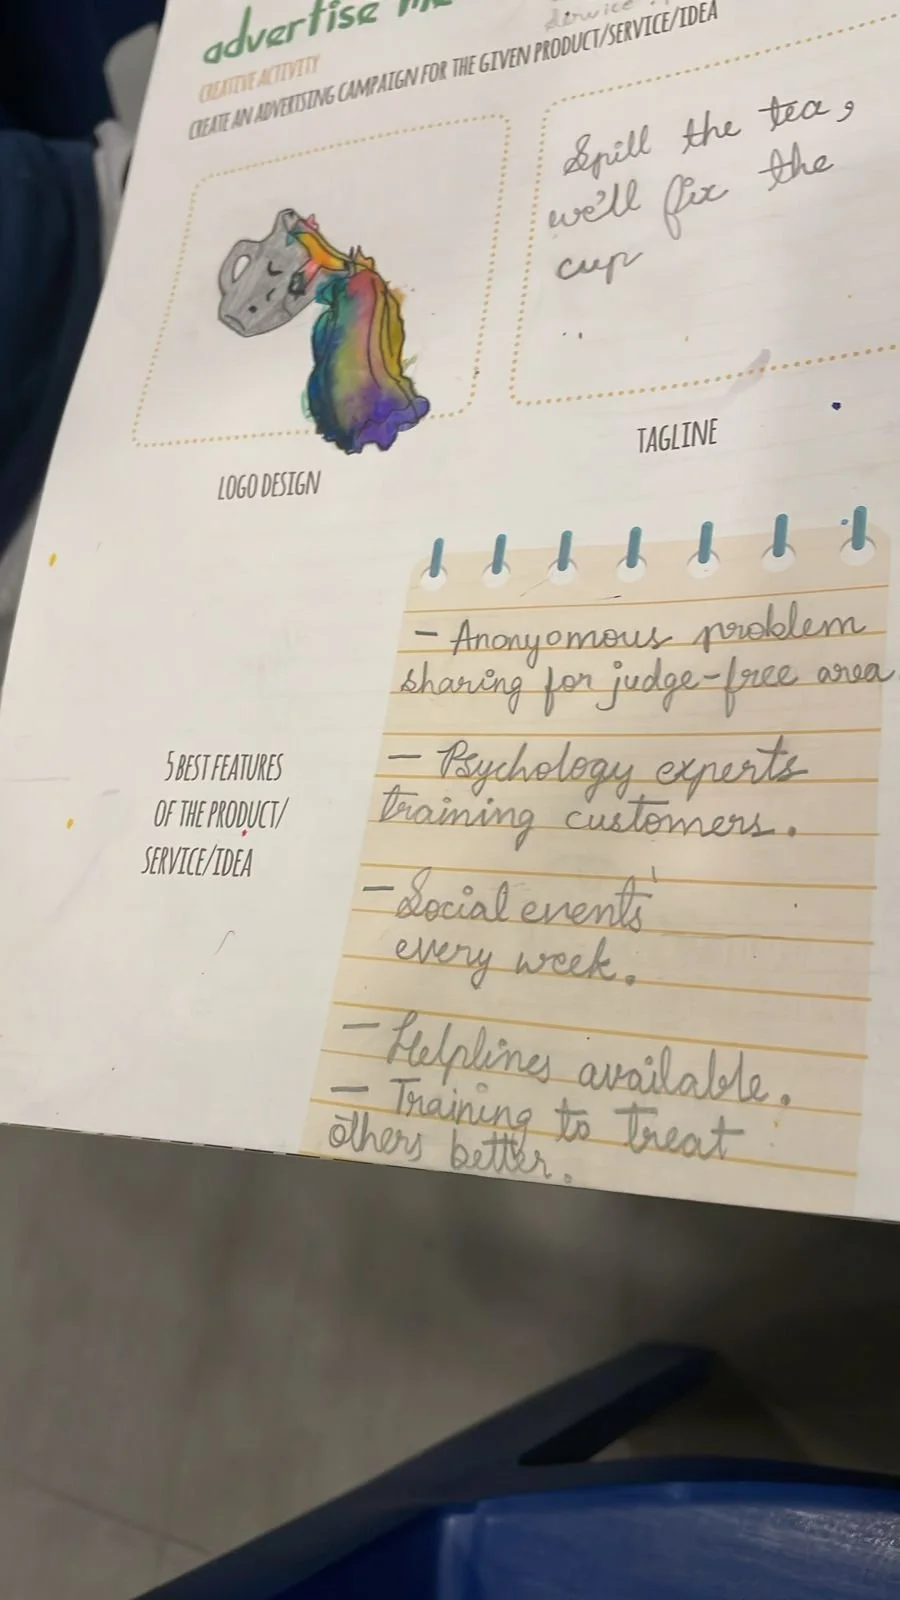 advertise
service
CREATIVE ACTIVITY
CREATE AN ADVERTISING CAMPAIGN FOR THE GIVEN PRODUCT/SERVICE/IDEA
Spill the tea,
we'll fix the
cup
LOGO DESIGN
TAGLINE
- Anonyomous problem
sharing for judge-free area
- Psychology experts
training customers.
- Social events
every week.
- Helplines available.
- Training to treat
others better.
5 BEST FEATURES
OF THE PRODUCT/
SERVICE/IDEA